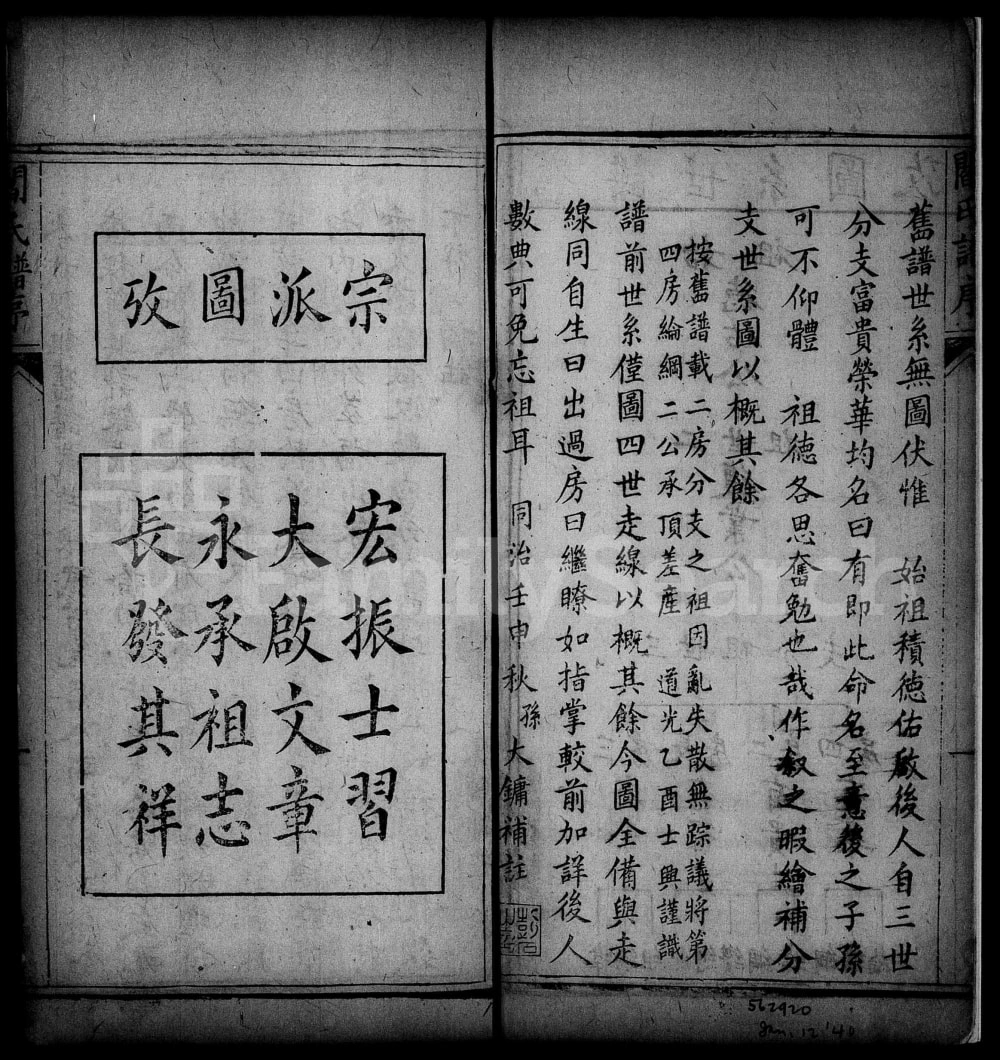 舊譜世系無圖伏惟　始祖積德佑啟後人自三世
分支富貴榮華均名曰有即此命名至意後之子孫
可不仰體　祖德各思奮勉也哉作敘之暇繪補分
支世系圖以概其餘
按舊譜載二房分支之祖因亂失散無踪議將第
四房綸綱二公承頂差產　道光乙酉士興謹識
譜前世系僅圖四世走線以概其餘今圖全備與走
線同自生曰出過房曰繼瞭如指掌較前加詳後人
數典可免忘祖耳　同治壬申秋孫大鏞補註
閻氏譜序
宗派圖攷
宏振士習
大啟文章
永承祖志
長發其祥
閻氏譜序
FamilySearch
562920
Jan. 12 '40